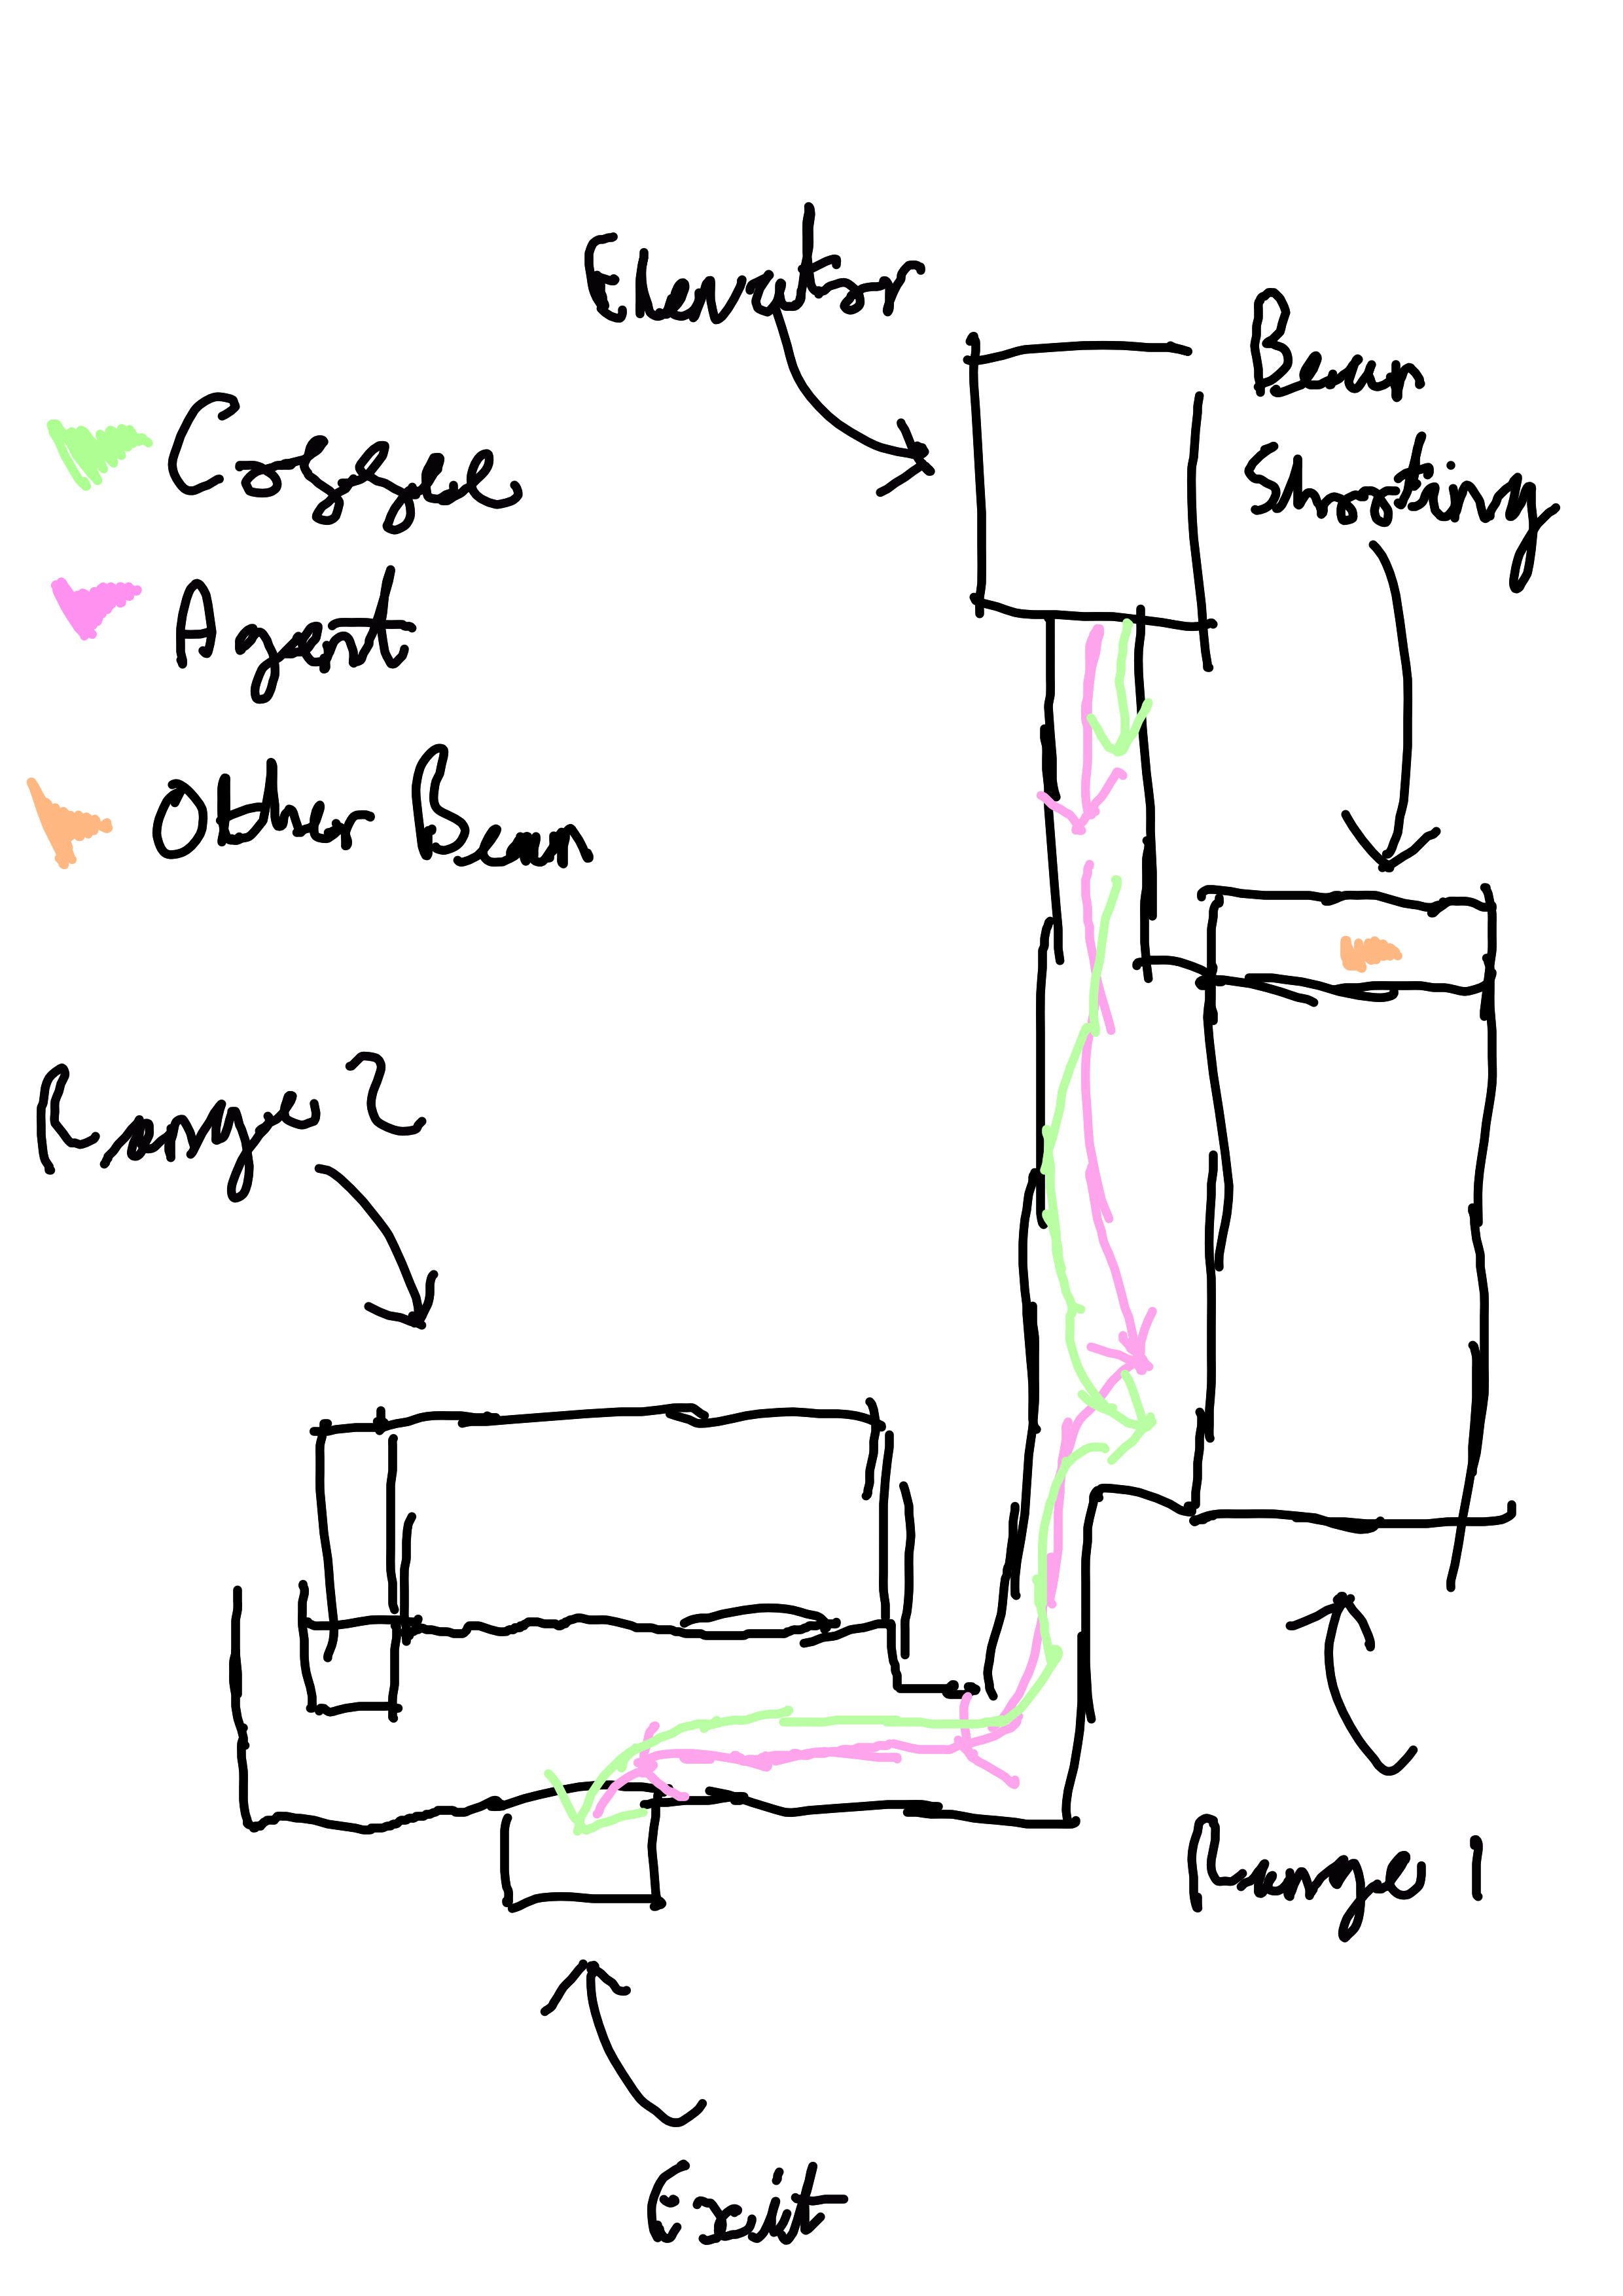 Elevator
Bean
Shooting
Coggee
Agent
Other Bean
Range 2
Range 1
Exit